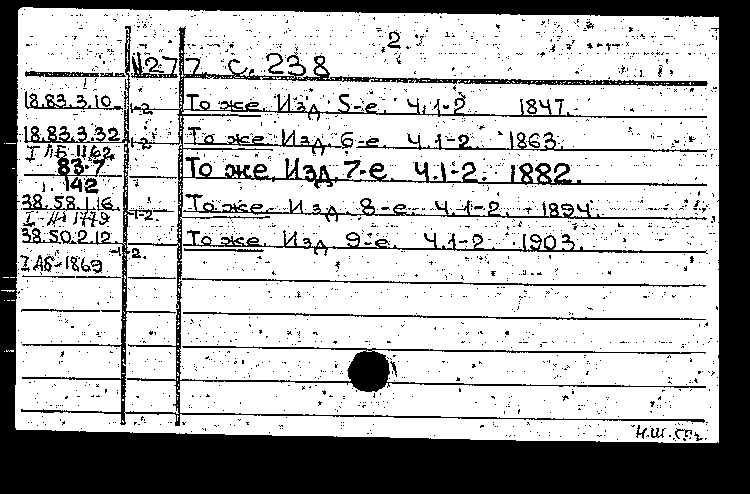 2
№277. с. 238
18.83.3.10 1-2 То же. Изд. 5-е. Ч.1-2. 1847.
18.83.3.32 1-2 То же. Изд. 6-е. Ч.1-2. 1863.
I АБ 1162
83-7 То же. Изд. 7-е. Ч.1-2. 1882.
142
38.58.1.16. 1-2. То же. Изд. 8-е. Ч.1-2. 1894.
38.50.2.12. 1-2. То же. Изд. 9-е. Ч.1-2. 1903.
I АБ-1869